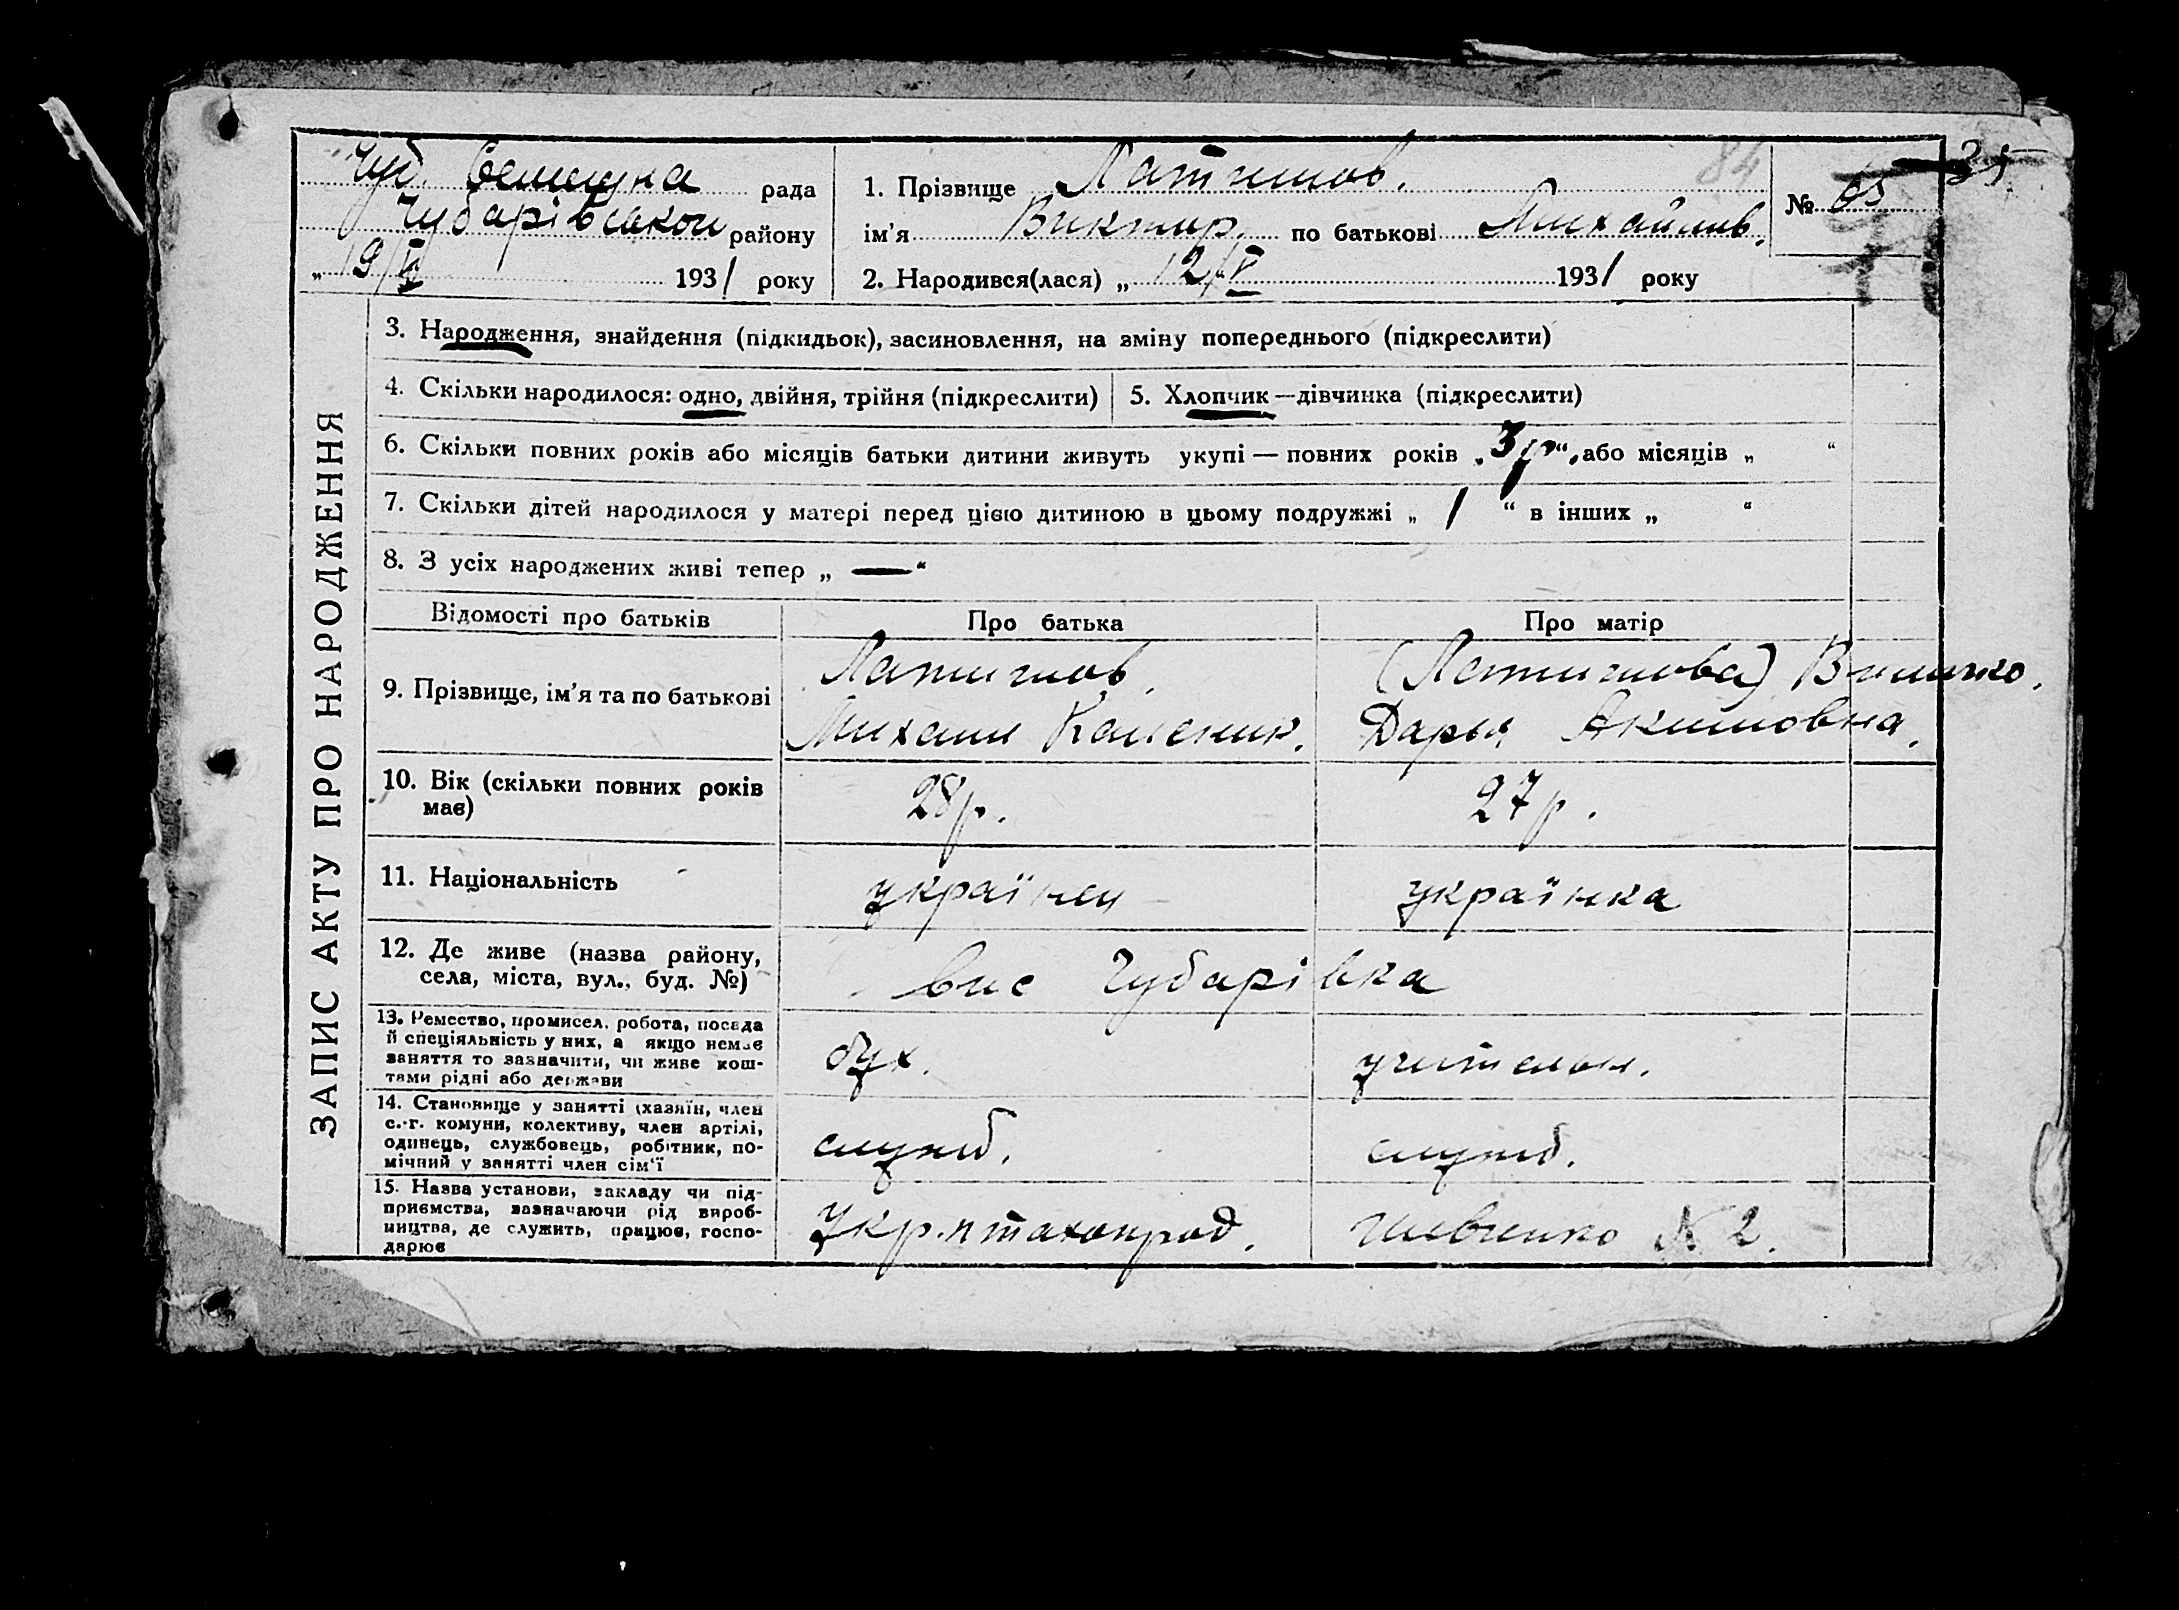 Чуб. Селищна рада
Чубарівської району
„ 19/VI 1931 року
1. Прізвище Латишов. 84
№ 65 35
ім'я Виктор. по батькові Михайлов.
2. Народився(лася) „ 12/V 1931 року
ЗАПИС АКТУ ПРО НАРОДЖЕННЯ
3. Народження, знайдення (підкидьок), засиновлення, на зміну попереднього (підкреслити)
4. Скільки народилося: одно, двійня, трійня (підкреслити)
5. Хлопчик—дівчинка (підкреслити)
6. Скільки повних років або місяців батьки дитини живуть укупі — повних років „ 3 р “, або місяців „ “
7. Скільки дітей народилося у матері перед цією дитиною в цьому подружжі „ 1 “ в інших „ “
8. З усіх народжених живі тепер „ — “
Відомості про батьків Про батька Про матір
9. Прізвище, ім'я та по батькові
Латишов
Михаил
(Латишова)
Дарья Акимовна.
10. Вік (скільки повних років
має)
28 р. 27 р.
11. Національність українец українка
12. Де живе (назва району,
села, міста, вул., буд. №)
Чубарівка
13. Ремество, промисел, робота, посада
й спеціяльність у них, а якщо немає
заняття то зазначити, чи живе кош-
тами рідні або держави
бух. учительн.
14. Становище у занятті (хазяїн, член
с.-г. комуни, колективу, член артілі,
одинець, службовець, робітник, по-
мічний у занятті член сім'ї
служб. служб.
15. Назва установи, закладу чи під-
приємства, зазначаючи рід вироб-
ництва, де служить, працює, госпо-
дарює
Укр.птахопрод. Шевченко № 2.